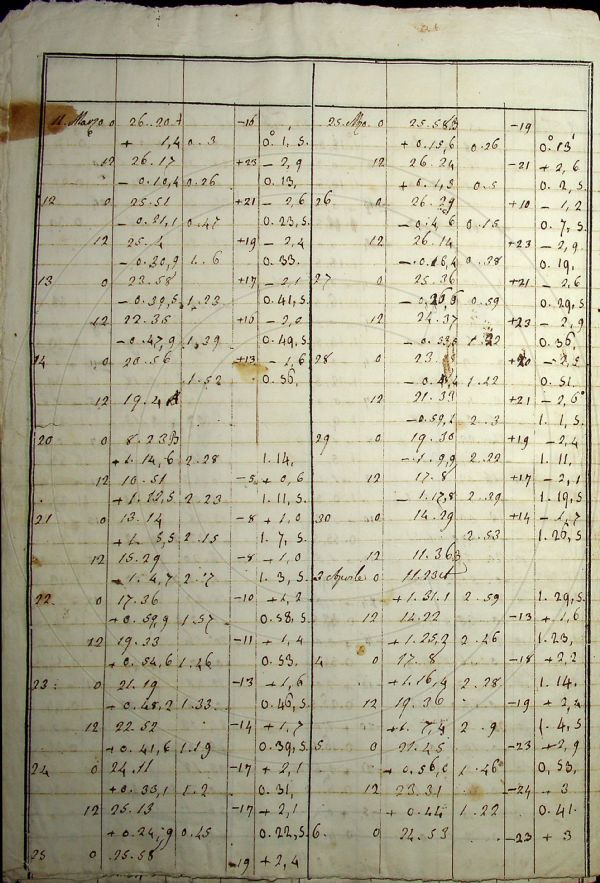 11. Marzo 0 26..20+ -16
+ 1,4 0.3 0.° 1,5.
12 26.17 +23 - 2,9
- 0.10,4 0.26 0.13,
12 0 25.51 +21 - 2,6
- 0.21,1 0.47 0.23,5
12 25.4 +19 - 2,4
- 0.30,9 1.6 0.33.
13 0 23.58 +17 - 2,1
- 0.39,5 1.23 0.41,5.
12 22.35 +16 - 2,0
- 0.47,9 1.39 0.49,5.
14 0 20.56 +13 - 1,6
1.52 0.56,
12 19.4
20 0 8.23B
+1.14,6 2.28 1.14,
12 10.51 -5 + 0,6
+1.12,5 2.23 1.11,5.
21 0 13.14 -8 + 1,0
+1.5,5 2.15 1.7,5
12 15.29 -8 + 1,0
1.4,7 2.7 1.3,5.
22. 0 17.36 -10 + 1,2
+0.59,9 1.57 0.58,5
12 19.33 -11 + 1,4
+0.54,6 1.46 0.53.
23. 0 21.19 -13 + 1,6
+0.48,2 1.33. 0.46,5.
12 22.52 -14 + 1,7
+0.41,6 1.19 0.39,5.
24 0 24.11 -17 + 2,1
+0.33,1 1.2 0.31,
12 25.13 -17 + 2,1
+0.24,9 0.45 0.22,5
25 0 25.58 -19 + 2,4
25. Mzo. 0 25.58B -19
+ 0.15,6 0.26 0.°13'
12 26.24 -21 + 2,6
+ 0.4,5 0.5 0.2,5,
26. 0 26.29 +10 - 1,2
-0.4,6 0.15 0.7,5.
12 26.14 +23 - 2,9.
-0.16,4 0.28 0.19,
27 0 25.36 +21 - 2,6
0.59 0.29,5
12 24.37 +23 - 2,9
0.36,
28 0 +20 - 2,5
1.22 0.51.
12 21.33 +21 - 2,6
-0.59,1 2.3 1.1,5.
29 0 19.30 +19 - 2,4
-1.9,9 2.22 1.11.
12 17.8 +17 - 2,1
- 1.17,8 2.29 1.19,5
30 0 14.29 +14 - 1,7
2.53 1.26,5
12 11.36B
3 Aprile 0 11.23
+1.31.1 2.59 1.29,5.
12 14.22 -13 + 1,6
+1.25,2 2.46 1.23,
4 0 17.8 -18 + 2,2
+1.16,4 2.28 1.14.
12 19.36 -19 + 2,4
+1.7,4 2.9 1.4,5
5. 0 21.45 -23 + 2,9
+0.56,0 1.46 0.53,
12 23.31 -24 + 3
+0.44 1.22 0.41.
6. 0 24.53 -23 + 3